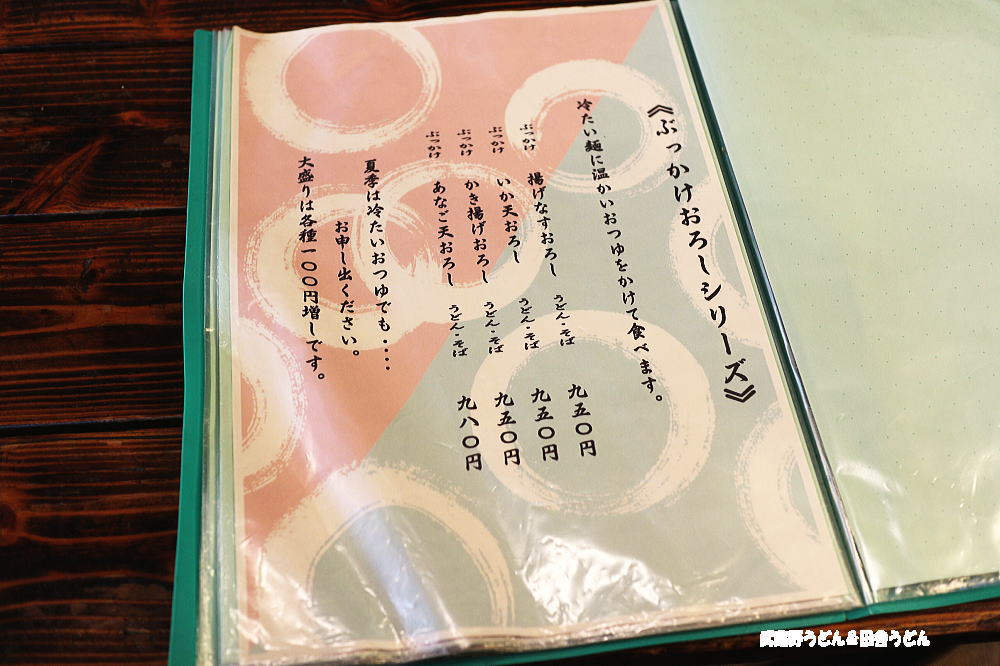 《ぶっかけおろしシリーズ》
冷たい麺に温かいおつゆをかけて食べます。
ぶっかけ 揚げなすおろし うどん・そば 九五〇円
ぶっかけ いか天おろし うどん・そば 九五〇円
ぶっかけ かき揚げおろし うどん・そば 九五〇円
ぶっかけ あなご天おろし うどん・そば 九八〇円
夏季は冷たいおつゆでも・・・・
お申し出ください。
大盛りは各種一〇〇円増しです。
武蔵野うどん&田舎うどん